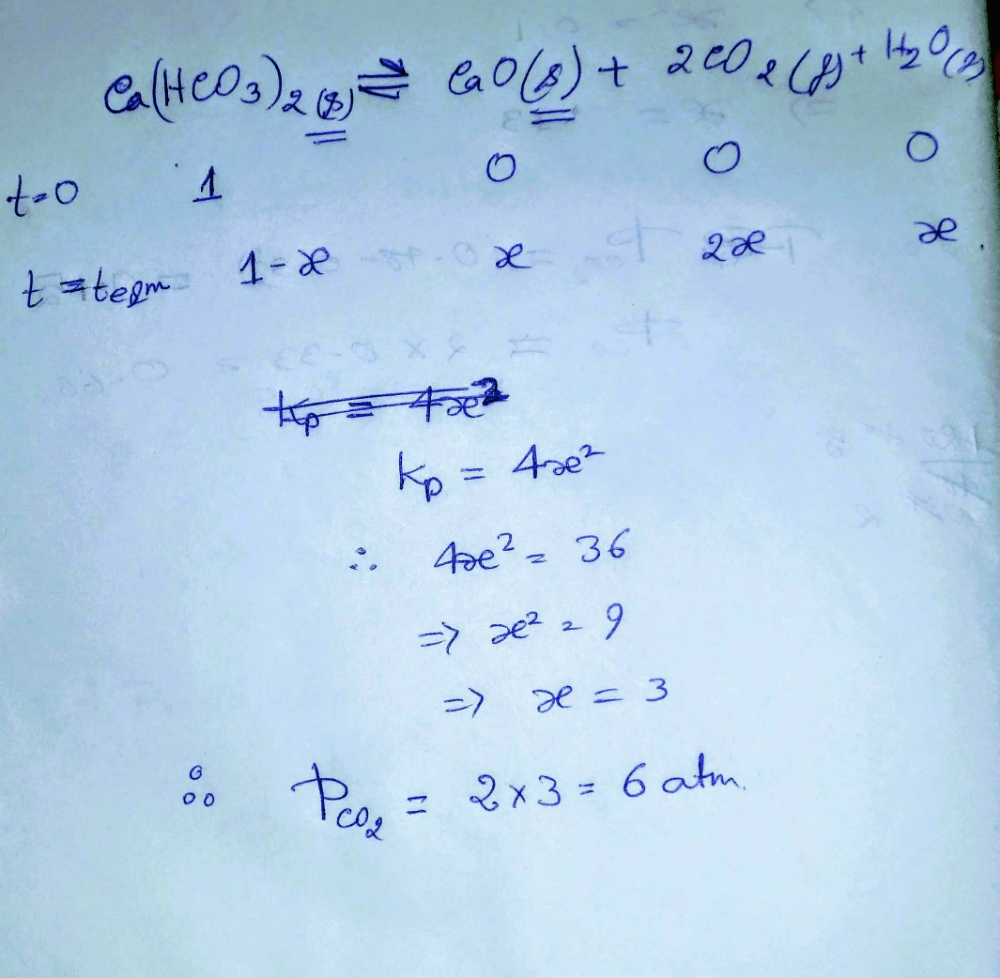 Ca(HCO3)2 (s) ⇌ CaO(s) + 2CO2(g) + H2O(g)
t=0 1 0 0 0
t = teqm 1-x x 2x x
Kp = 4x²
Kp = 4x²
∴ 4x² = 36
=> x² = 9
=> x = 3
∴ PCO2 = 2×3 = 6 atm.